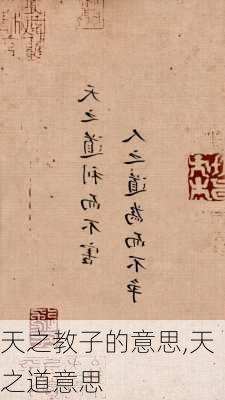 天之道利而不害
人之道為而不争
天之教子的意思,天
之道意思